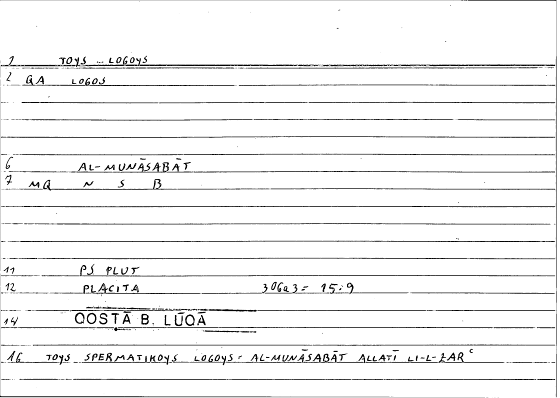 1 TOYS ... LOGOYS
2 QA LOGOS
6 AL-MUNĀSABĀT
7 MQ N S B
11 PS PLUT
12 PLACITA 306a3 = 15:9
14 QOSṬĀ B. LŪQĀ
16 TOYS SPERMATIKOYS LOGOYS = AL-MUNĀSABĀT ALLATĪ LI-L-ZARᶜ